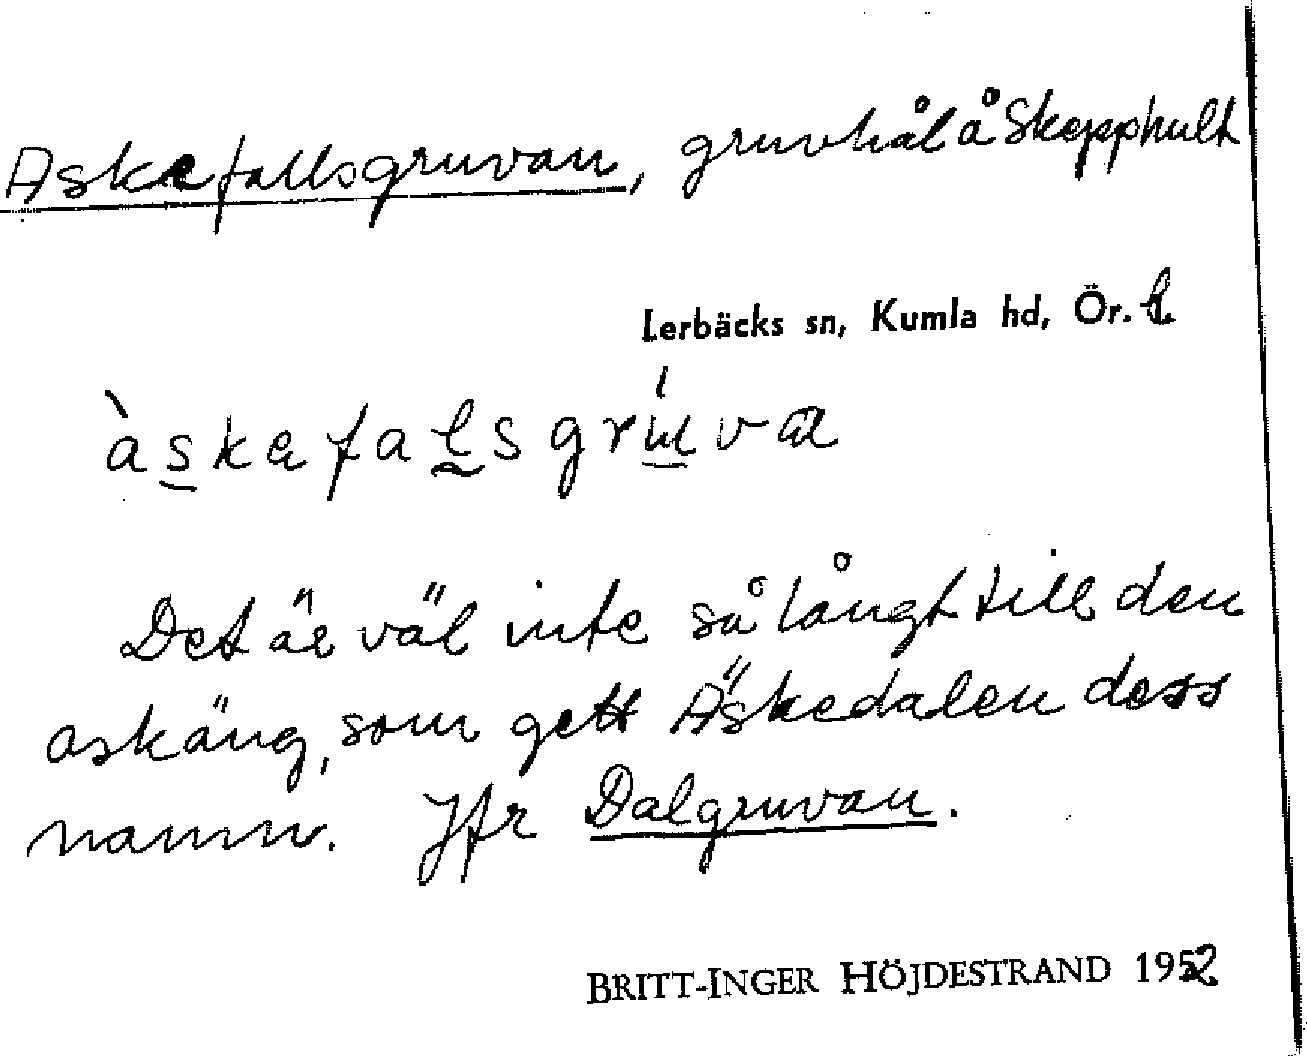 Askefallsgruvan, gruvhål å Skepphult
Lerbäcks sn, Kumla hd, Ör. l.
àskefalsgrúva
Det är väl inte så långt till den
askäng, som gett Äskedalen dess
namn. Jfr Dalgruvan.
BRITT-INGER HÖJDESTRAND 1952